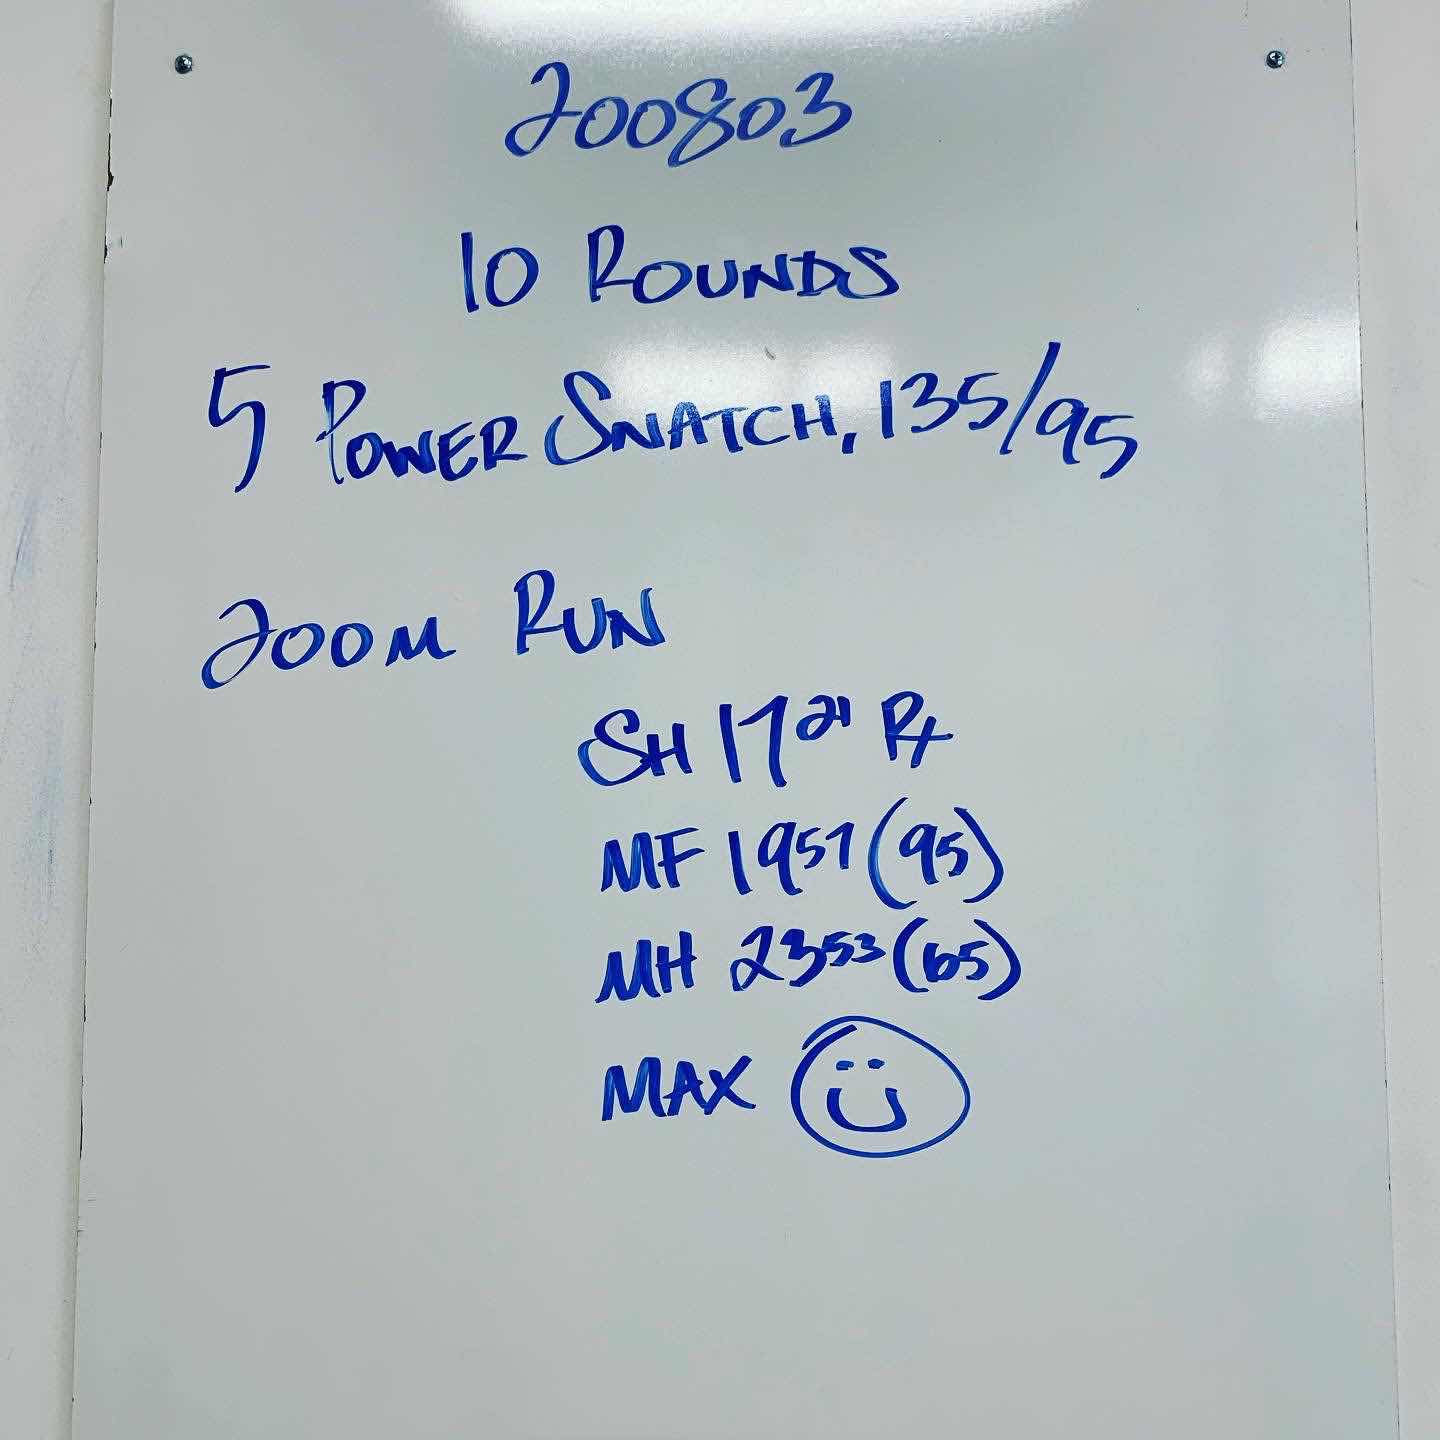 200803
10 ROUNDS
5 POWER SNATCH, 135/95
200M RUN
SH 17 21 Rx
MF 1957 (95)
MH 2353 (65)
MAX